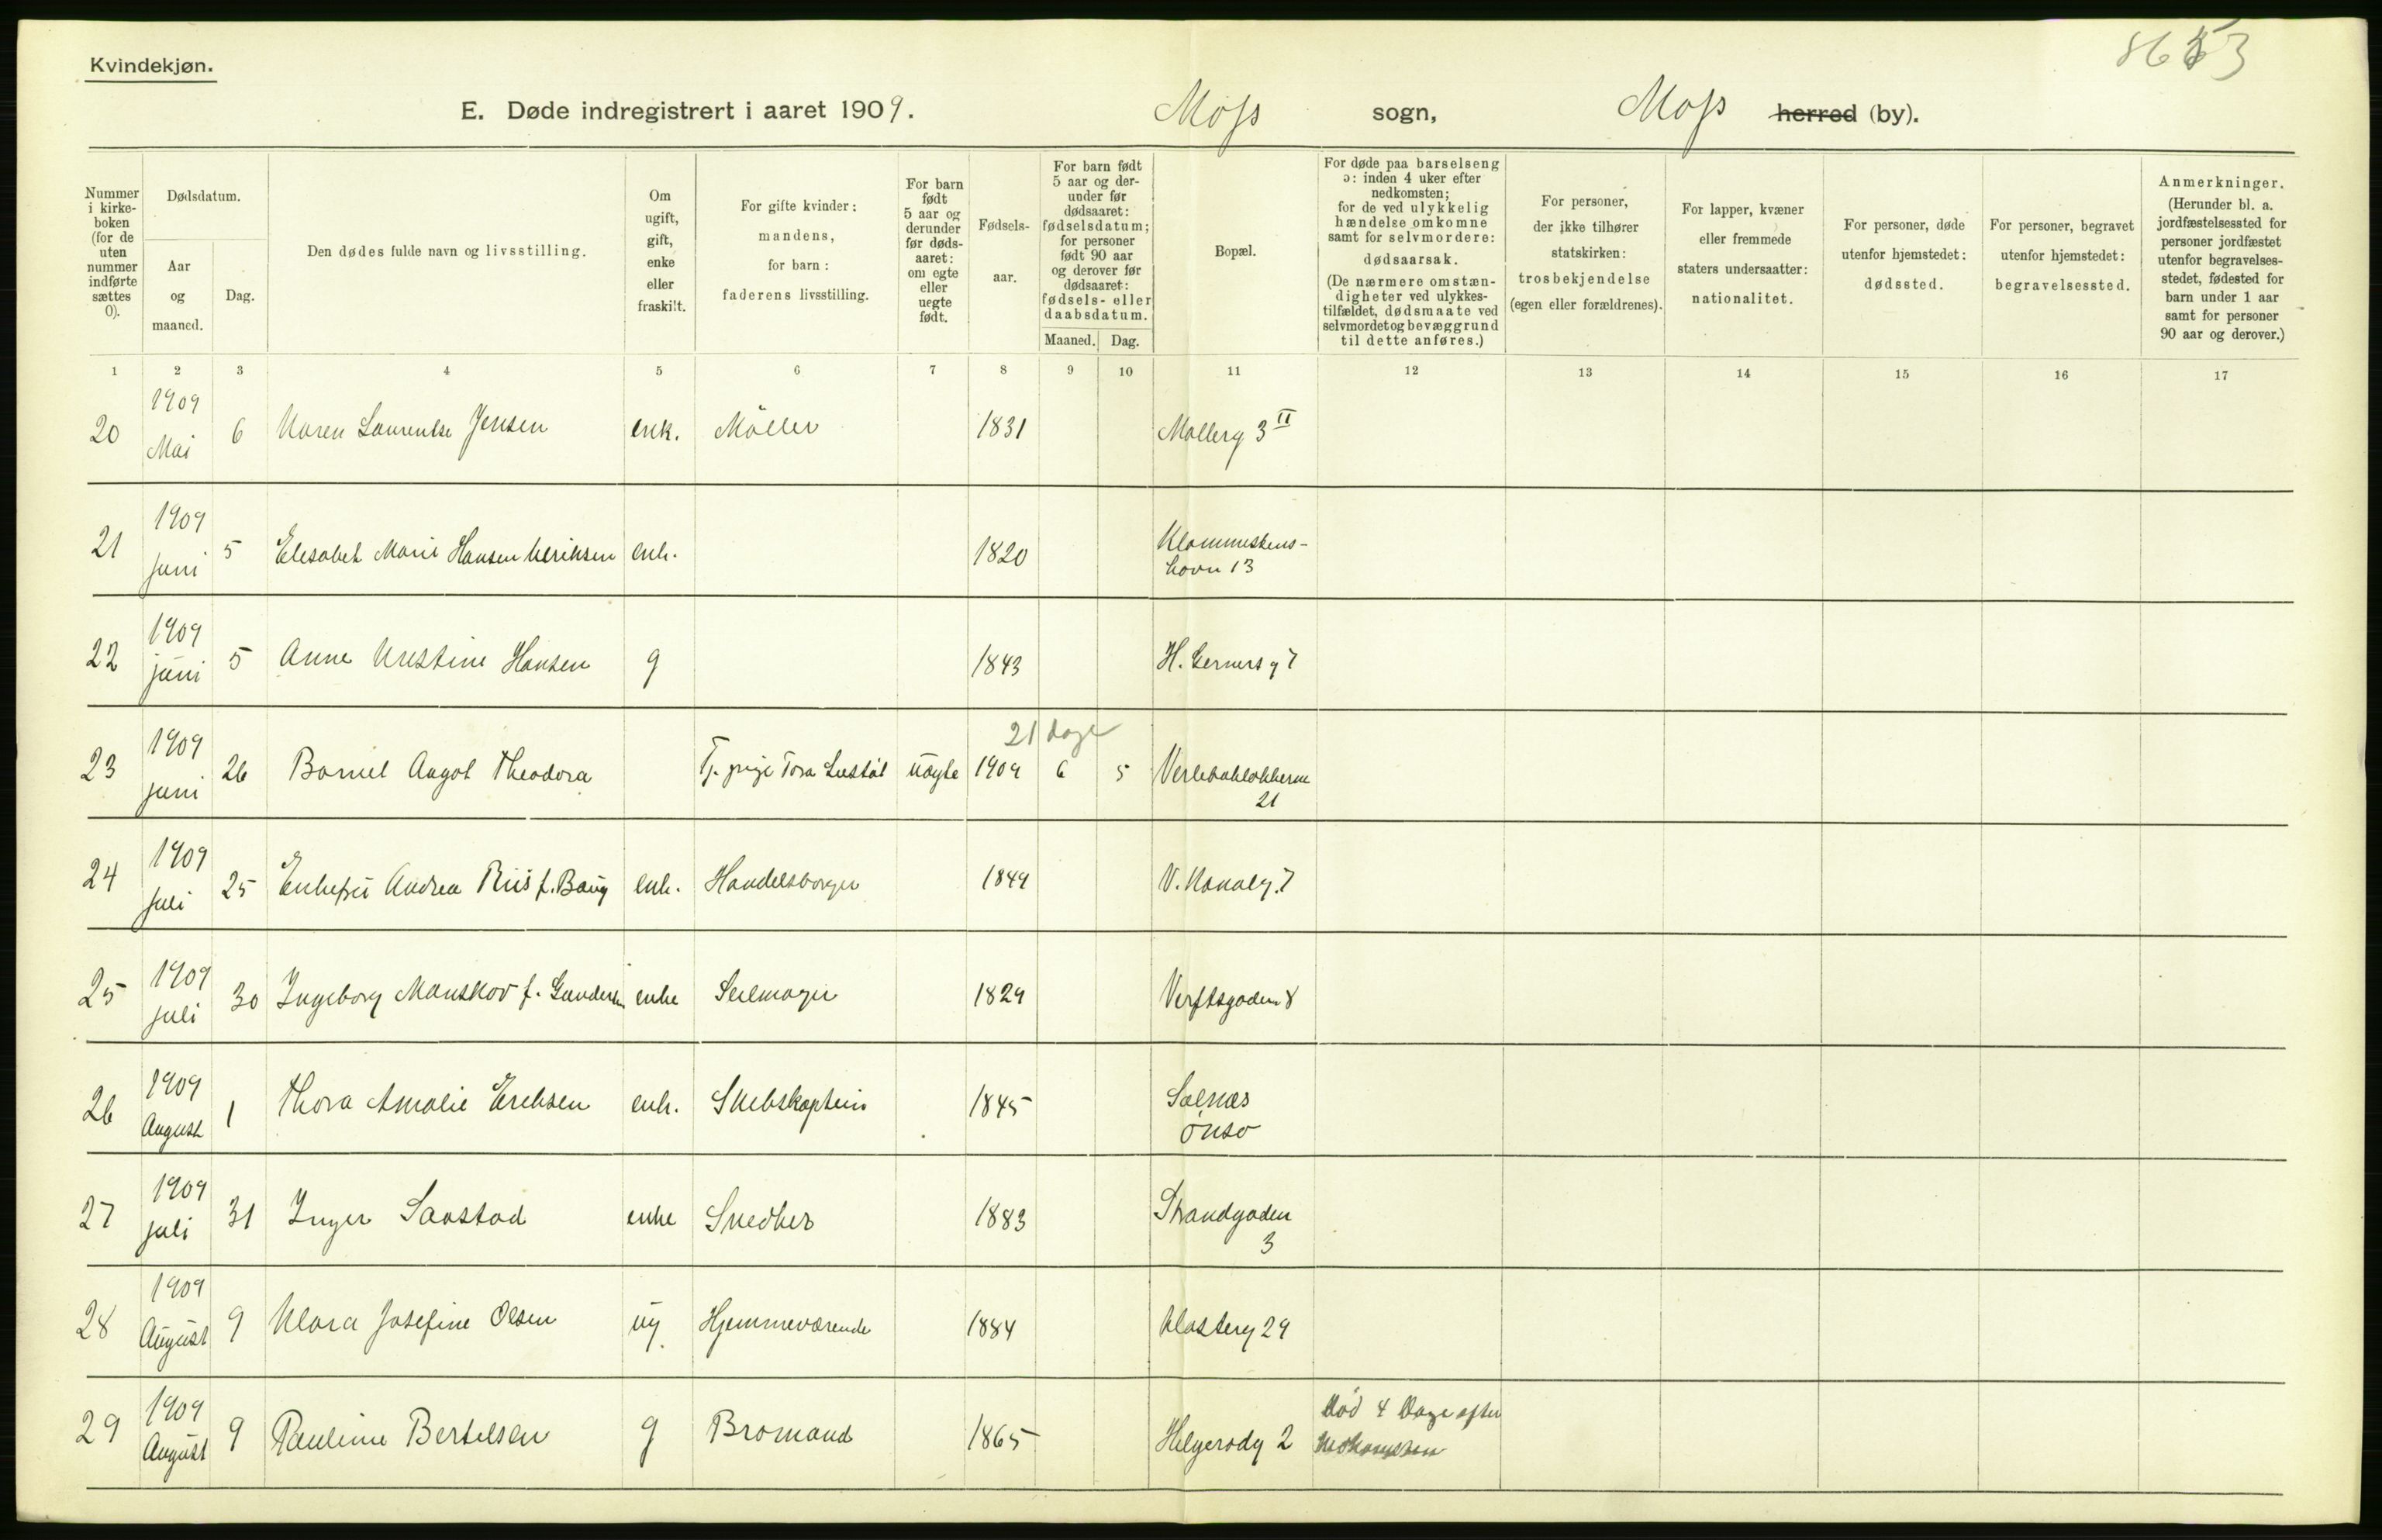 Kvindekjøn.
E. Døde indregistrert i aaret 1909.
Moss sogn, Moss herred (by).
Nummer i kirke- boken (for de uten nummer indførte sættes 0).
Dødsdatum.
Aar og maaned.
Dag.
Den dødes fulde navn og livsstilling.
Om ugift, gift, enke eller fraskilt.
For gifte kvinder: mandens, for barn: faderens livsstilling.
For barn født 5 aar og derunder før døds- aaret: om egte eller uegte født.
Fødsels- aar.
For barn født 5 aar og der- under før dødsaaret: fødselsdatum; for personer født 90 aar og derover før dødsaaret: fødsels- eller daabsdatum.
Maaned. Dag.
Bopæl.
For døde paa barselseng ɔ: inden 4 uker efter nedkomsten; for de ved ulykkelig hændelse omkomne samt for selvmordere: dødsaarsak. (De nærmere omstæn- digheter ved ulykkes- tilfældet, dødsmaate ved selvmordet og bevæggrund til dette anføres.)
For personer, der ikke tilhører statskirken: trosbekjendelse (egen eller forældrenes).
For lapper, kvæner eller fremmede staters undersaatter: nationalitet.
For personer, døde utenfor hjemstedet: dødssted.
For personer, begravet utenfor hjemstedet: begravelsessted.
Anmerkninger. (Herunder bl. a. jordfæstelsessted for personer jordfæstet utenfor begravelses- stedet, fødested for barn under 1 aar samt for personer 90 aar og derover.)
1 2 3 4 5 6 7 8 9 10 11 12 13 14 15 16 17
20 1909 Mai 6 Karen Laurentse Jensen enk. Möller 1831 Mollerg 3 II
21 1909 Juni 5 Elisabet Marie Hansen Eriksen enk. 1820 Klommestens- havn 13
22 1909 juni 5 Anne Kristine Hansen g 1843 H. Gerners g 7
21 dage
23 1909 juni 26 Barnet Augot Theodora Tj. pige Tora uægte 1909 6 5 21
24 1909 Juli 25 Enkefru Andrea Riis f. Baug enk. Handelsborger 1849 V. Kanalg. 7
25 1909 juli 30 Ingeborg Manskov f. Gundersen enke Seilmager 1829 Verftsgaden 8
26 1909 August 1 Thora Amalie Eriksen enk. Skibskaptein 1845 Saltnæs Onsø
27 1909 juli 31 Inger Saastad enke Snedker 1883 Strandgaden 3
28 1909 August 9 Klara Josefine Olsen ug. Hjemmeværende 1884 Klosterg 29
29 1909 August 9 Pauline Bertelsen g Bromand 1865 Helgerødg 2 Død 4 Dage efter Nedkomsten